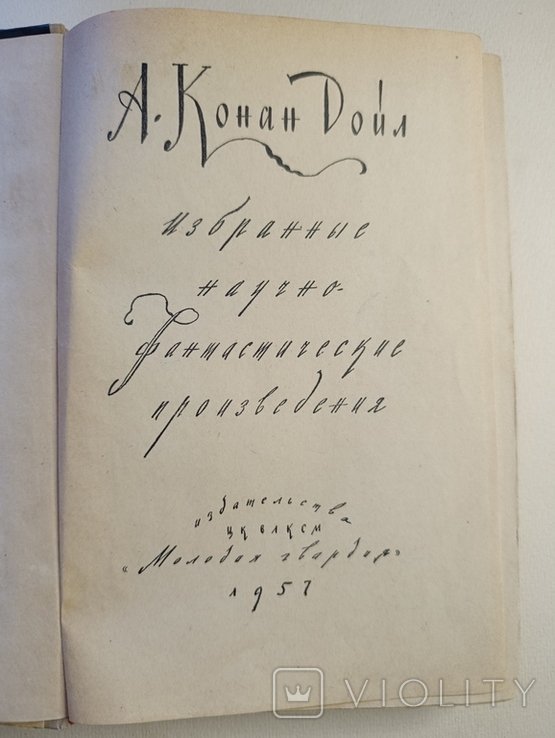 А. Конан Дойл
избранные
научно-
фантастические
произведения
издательство
ЦК ВЛКСМ
"Молодая гвардия"
1957
VIOLITY